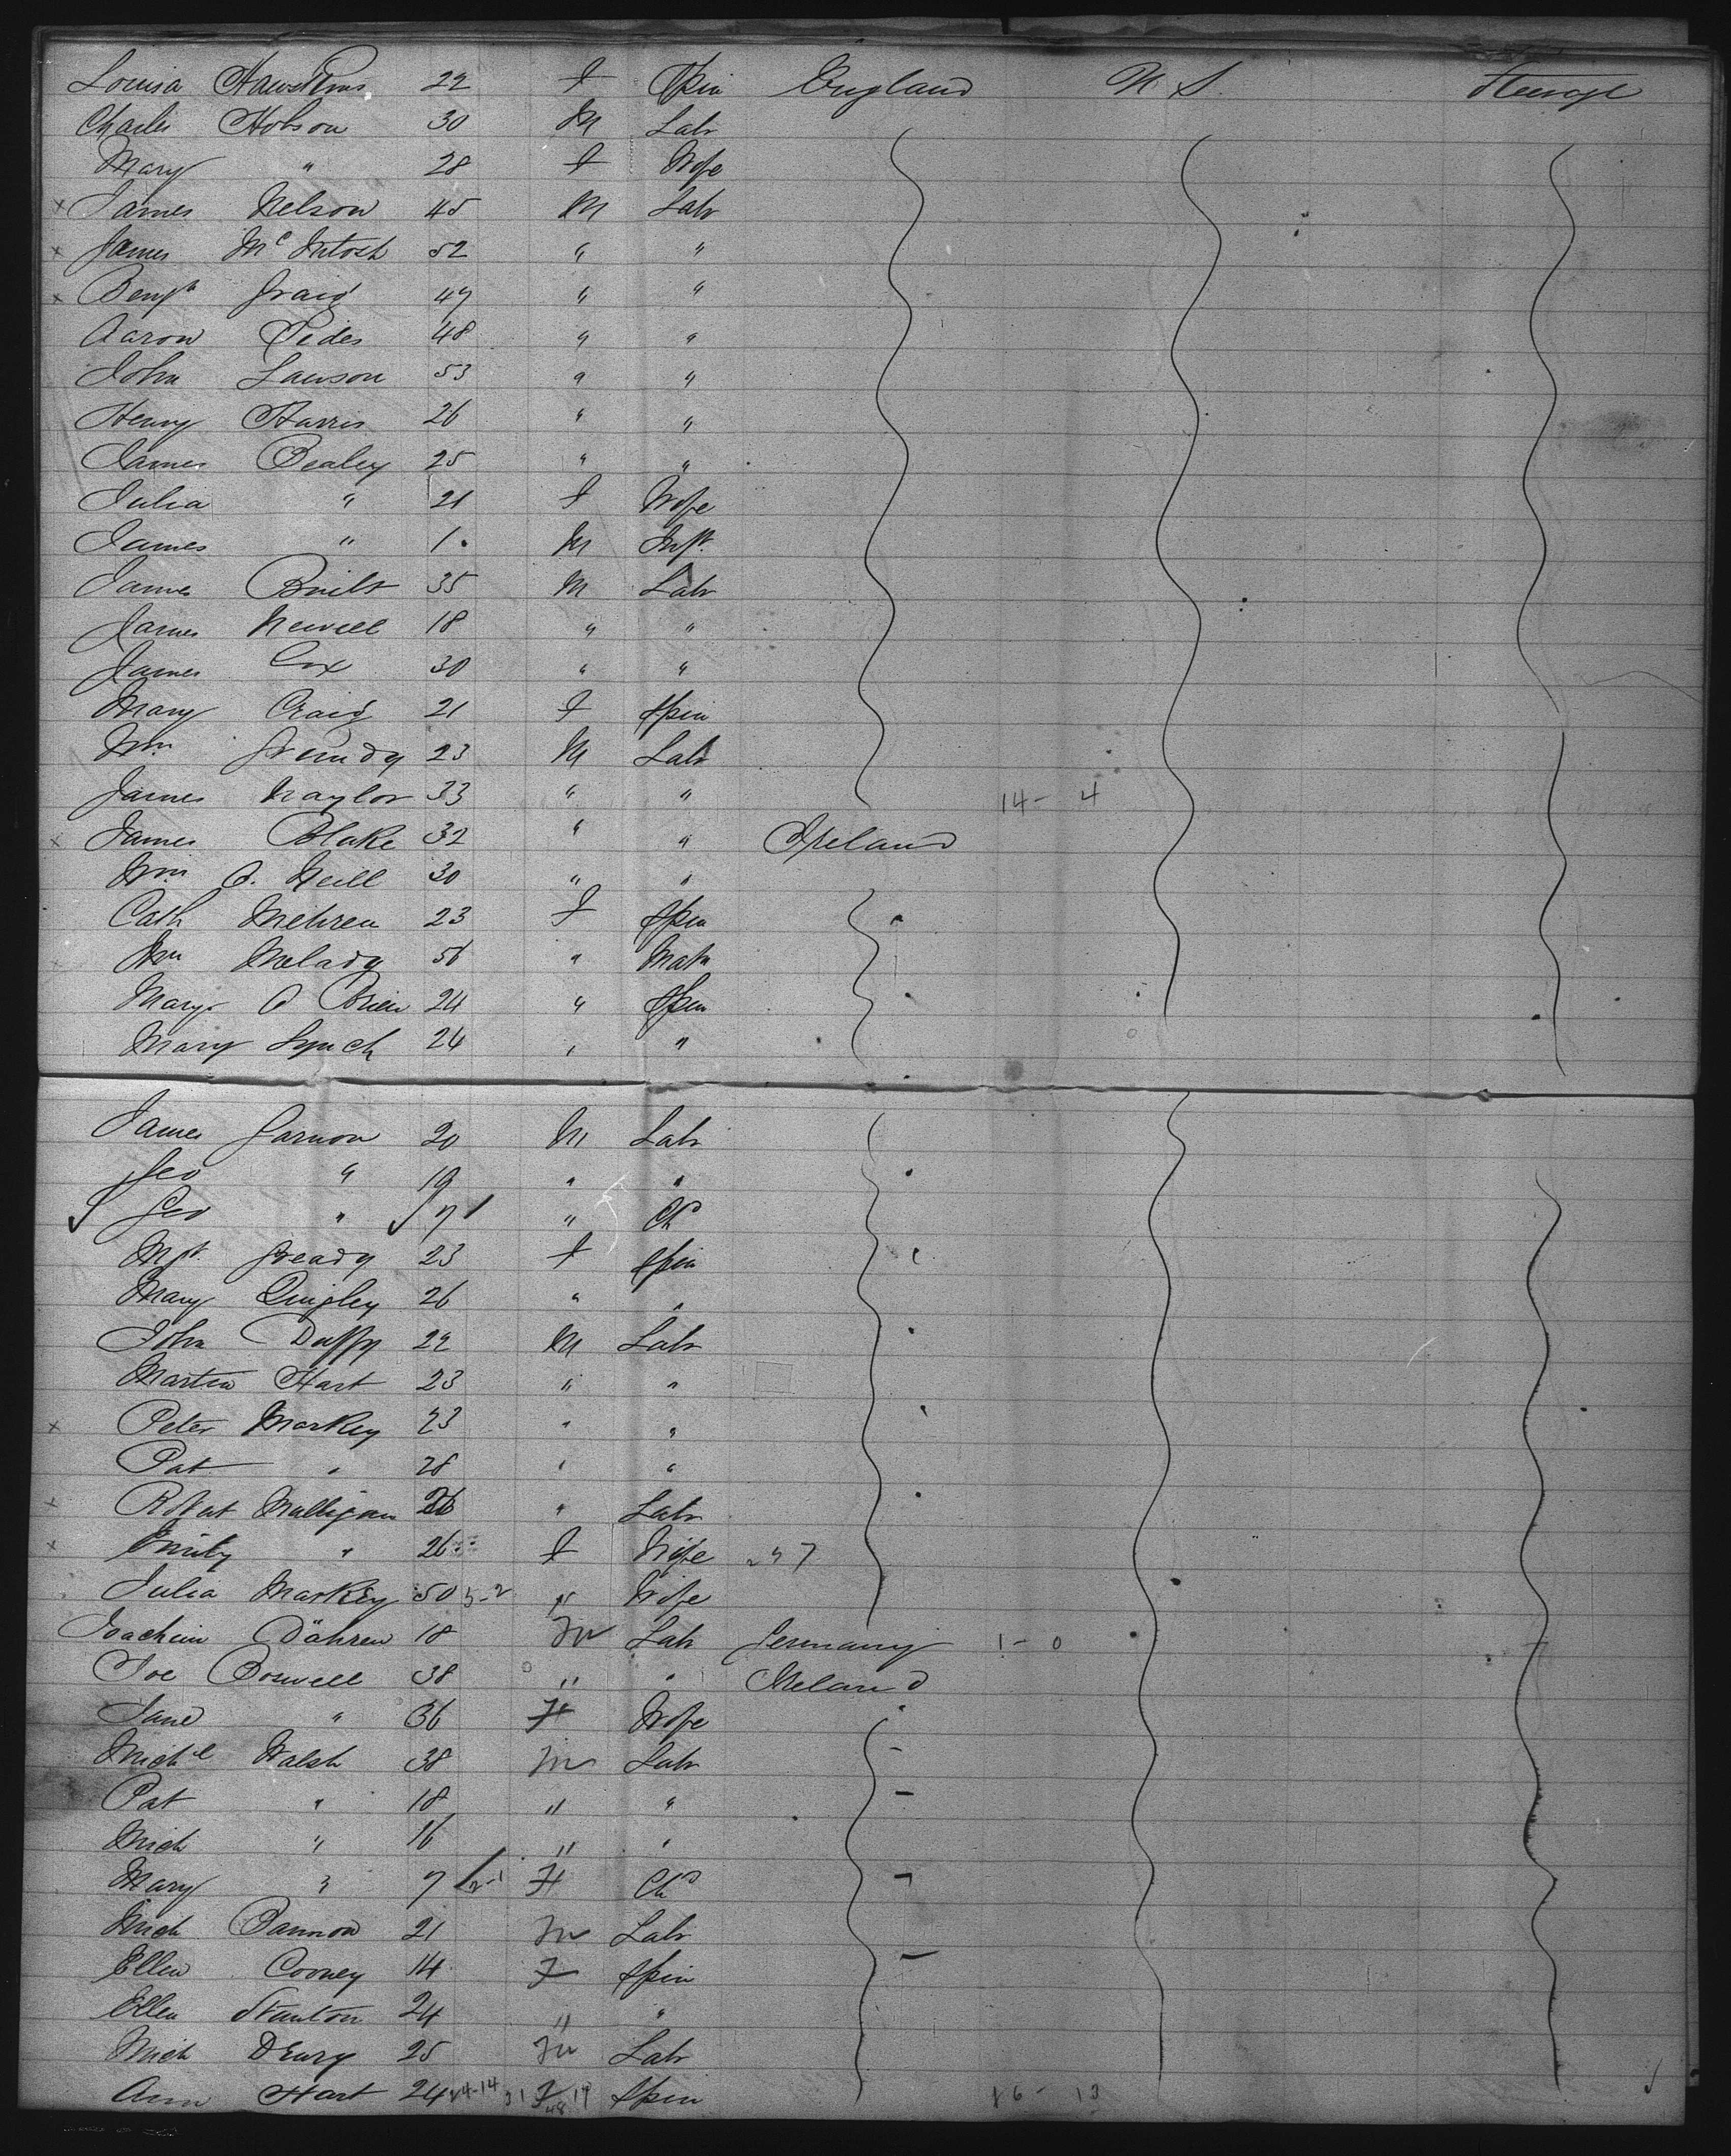 Louisa Hawkins 22 F Spin England U S. Steerage
Charles Hobson 30 M Labr
Mary " 28 F Wife
x James Nelson 45 M Labr
x James Mc Intosh 52 " "
x Benjn Graig 47 " "
Aaron Sides 48 " "
John Lawson 53 " "
Henry Harris 26 " "
James Bealey 25 " "
Julia " 21 F Wife
James " 1 M Inft
James Built 35 M Labr
James Newell 18 " "
James Cox 30 " "
Mary Craig 21 F Spin
Wm Grundy 23 M Labr
James Naylor 33 " " 14 - 4
x James Blake 32 " " Ireland
Wm O. Neill 30 " "
Cath 23 F Spin
Melady 56 " Matn
Mary O Brien 24 " Spin
Mary Lynch 24 " "
James Garnon 20 M Labr
Geo " 19 " "
Geo " 7 " Chd
Mgt Gready 23 F Spin
Mary Quigley 26 " "
John Duffy 22 M Labr
Martin Hart 23 " "
x Peter Markey 23 " "
Pat " 28 " "
x Robat Mulligan 26 " Labr
x Emily " 26 F Wife
Julia Markey 50 " Wife
Joachim Döhren 18 M Labr Germany 1 - 0
Joe Boswell 38 " " Ireland
Jane " 36 F Wife
Michl Walsh 38 M Labr
Pat " 18 " "
Mich " 16 " "
Mary " 7 F Chd
Mich Bannon 21 M Labr
Ellen Cooney 14 F Spin
Ellen Stanton 24 " "
Mich 25 M Labr
Ann Hart 24 F Spin 16 - 13